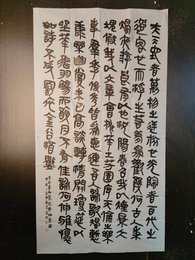 夫天地者萬物之逆旅也光陰者百代之
過客也而浮生若夢為歡幾何古人秉
燭夜遊良有以也況陽春召我以煙景大
塊假我以文章會桃花之芳園序天倫之樂
事群季俊秀皆為惠連吾人詠歌獨慚
康樂幽賞未已高談轉清開瓊筵以
坐花飛羽觴而醉月不有佳詠何伸雅懷
如詩不成罰依金谷酒數